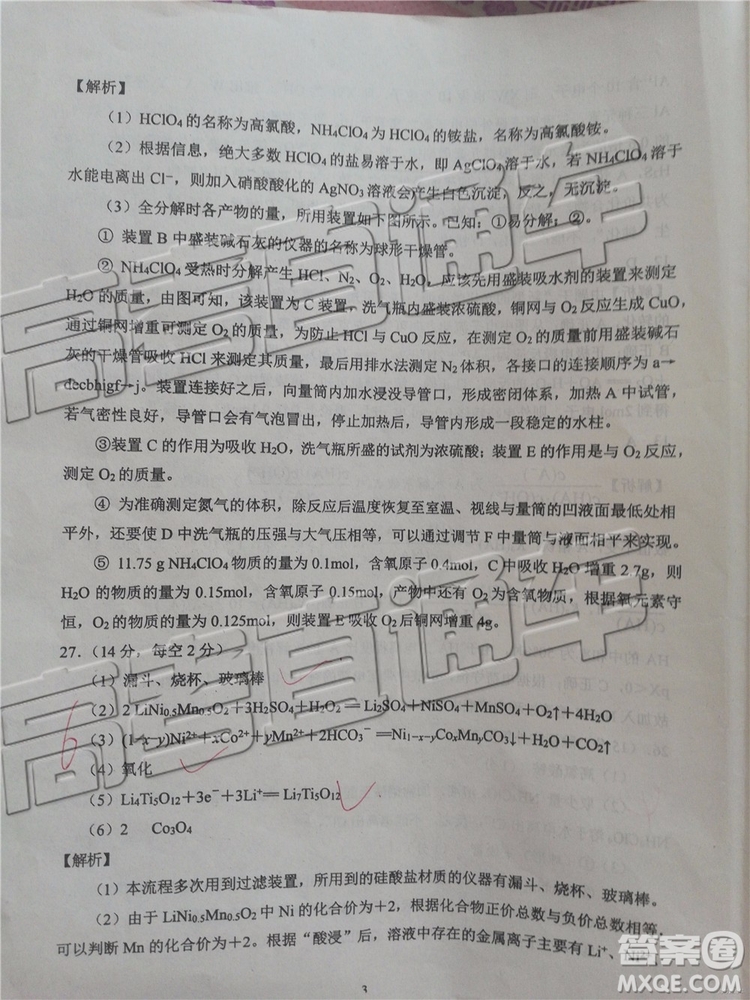 【解析】
（1）HClO₄的名称为高氯酸，NH₄ClO₄为HClO₄的铵盐，名称为高氯酸铵。
（2）根据信息，绝大多数HClO₄的盐易溶于水，即AgClO₄溶于水，若NH₄ClO₄在
水能电离出Cl⁻，则加入硝酸酸化的AgNO₃溶液会产生白色沉淀；反之，无沉淀。
（3）全分解时各产物的量，所用装置如下图所示。已知：①易分解；②。
① 装置B中盛装碱石灰的仪器的名称为球形干燥管。
② NH₄ClO₄受热时分解产生HCl、N₂、O₂、H₂O，应该先用盛装吸水剂的装置来测定
H₂O的质量，由图可知，该装置为C装置，洗气瓶内盛装浓硫酸，铜网与O₂反应生成CuO，
通过铜网增重可测定O₂的质量，为防止HCl与CuO反应，在测定O₂的质量前用盛装碱石
灰的干燥管吸收HCl来测定其质量，最后用排水法测定N₂体积，各接口的连接顺序为a→
decbhigf→j。装置连接好之后，向量筒内加水浸没导管口，形成密闭体系，加热A中试管，
若气密性良好，导管口会有气泡冒出，停止加热后，导管内形成一段稳定的水柱。
③装置C的作用为吸收H₂O，洗气瓶所盛的试剂为浓硫酸；装置E的作用是与O₂反应，
测定O₂的质量。
④ 为准确测定氮气的体积，除反应后温度恢复至室温、视线与量筒的凹液面最低处相
平外，还要使D中洗气瓶的压强与大气压相等，可以通过调节F中量筒与液面相平来实现。
⑤ 11.75 g NH₄ClO₄物质的量为0.1mol，含氧原子0.4mol，C中吸收H₂O增重2.7g，则
H₂O的物质的量为0.15mol，含氧原子0.15mol，产物中还有O₂为含氧物质，根据氧元素守
恒，O₂的物质的量为0.125mol，则装置E吸收O₂后铜网增重4g。
27.（14分，每空2分）
（1）漏斗、烧杯、玻璃棒
（2）2 LiNi₀.₅Mn₀.₅O₂+3H₂SO₄+H₂O₂ ═ Li₂SO₄+NiSO₄+MnSO₄+O₂↑+4H₂O
（3）(1-x-y)Ni²⁺+xCo²⁺+yMn²⁺+2HCO₃⁻ ═Ni₁₋ₓ₋yCoₓMnyCO₃↓+H₂O+CO₂↑
（4）氧化
（5）Li₄Ti₅O₁₂+3e⁻+3Li⁺═ Li₇Ti₅O₁₂
（6）2 Co₃O₄
【解析】
（1）本流程多次用到过滤装置，所用到的硅酸盐材质的仪器有漏斗、烧杯、玻璃棒。
（2）由于LiNi₀.₅Mn₀.₅O₂中Ni的化合价为+2，根据化合物正价总数与负价总数相等，
可以判断Mn的化合价为+2。根据“酸浸”后，溶液中存在的金属离子主要有Li⁺、
3
高考直通车
高考直通车
高考直通车
答案圈
MXQE.COM
6